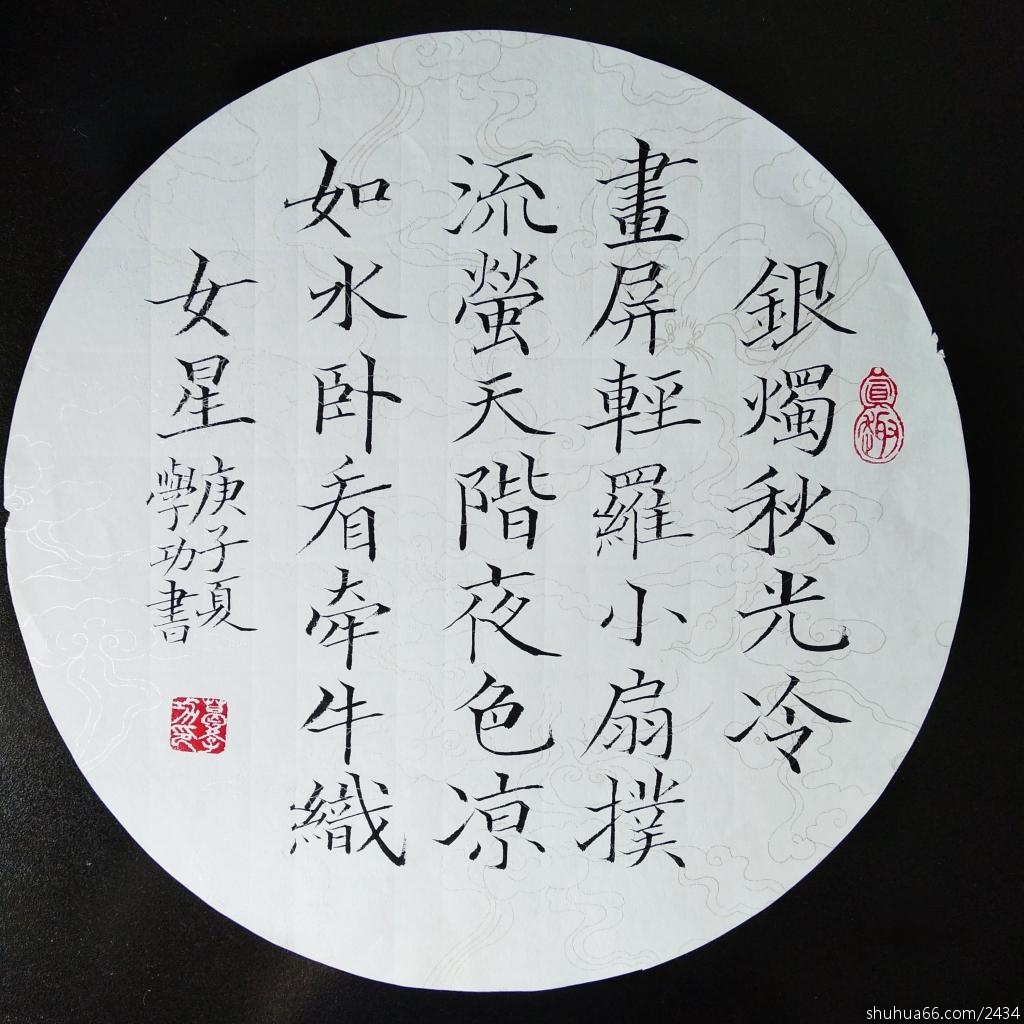 銀燭秋光冷
畫屏輕羅小扇撲
流螢天階夜色涼
如水卧看牽牛織
女星
庚子夏
學功書
shuhua66.com/2434